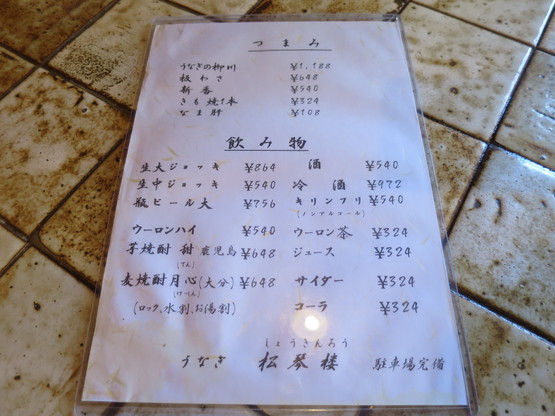 つまみ
うなぎの柳川 ¥1,188
板わさ ¥648
新香 ¥540
きも焼1本 ¥324
なま肝 ¥108
飲み物
生大ジョッキ ¥864 酒 ¥540
生中ジョッキ ¥540 冷酒 ¥972
瓶ビール大 ¥756 キリンフリ ¥540
(ノンアルコール)
ウーロンハイ ¥540 ウーロン茶 ¥324
芋焼酎 甜 鹿児島 ¥648 ジュース ¥324
(てん)
麦焼酎月心(大分) ¥648 サイダー ¥324
(げっしん)
(ロック、水割、お湯割) コーラ ¥324
しょうきんろう
うなぎ 松琴楼 駐車場完備